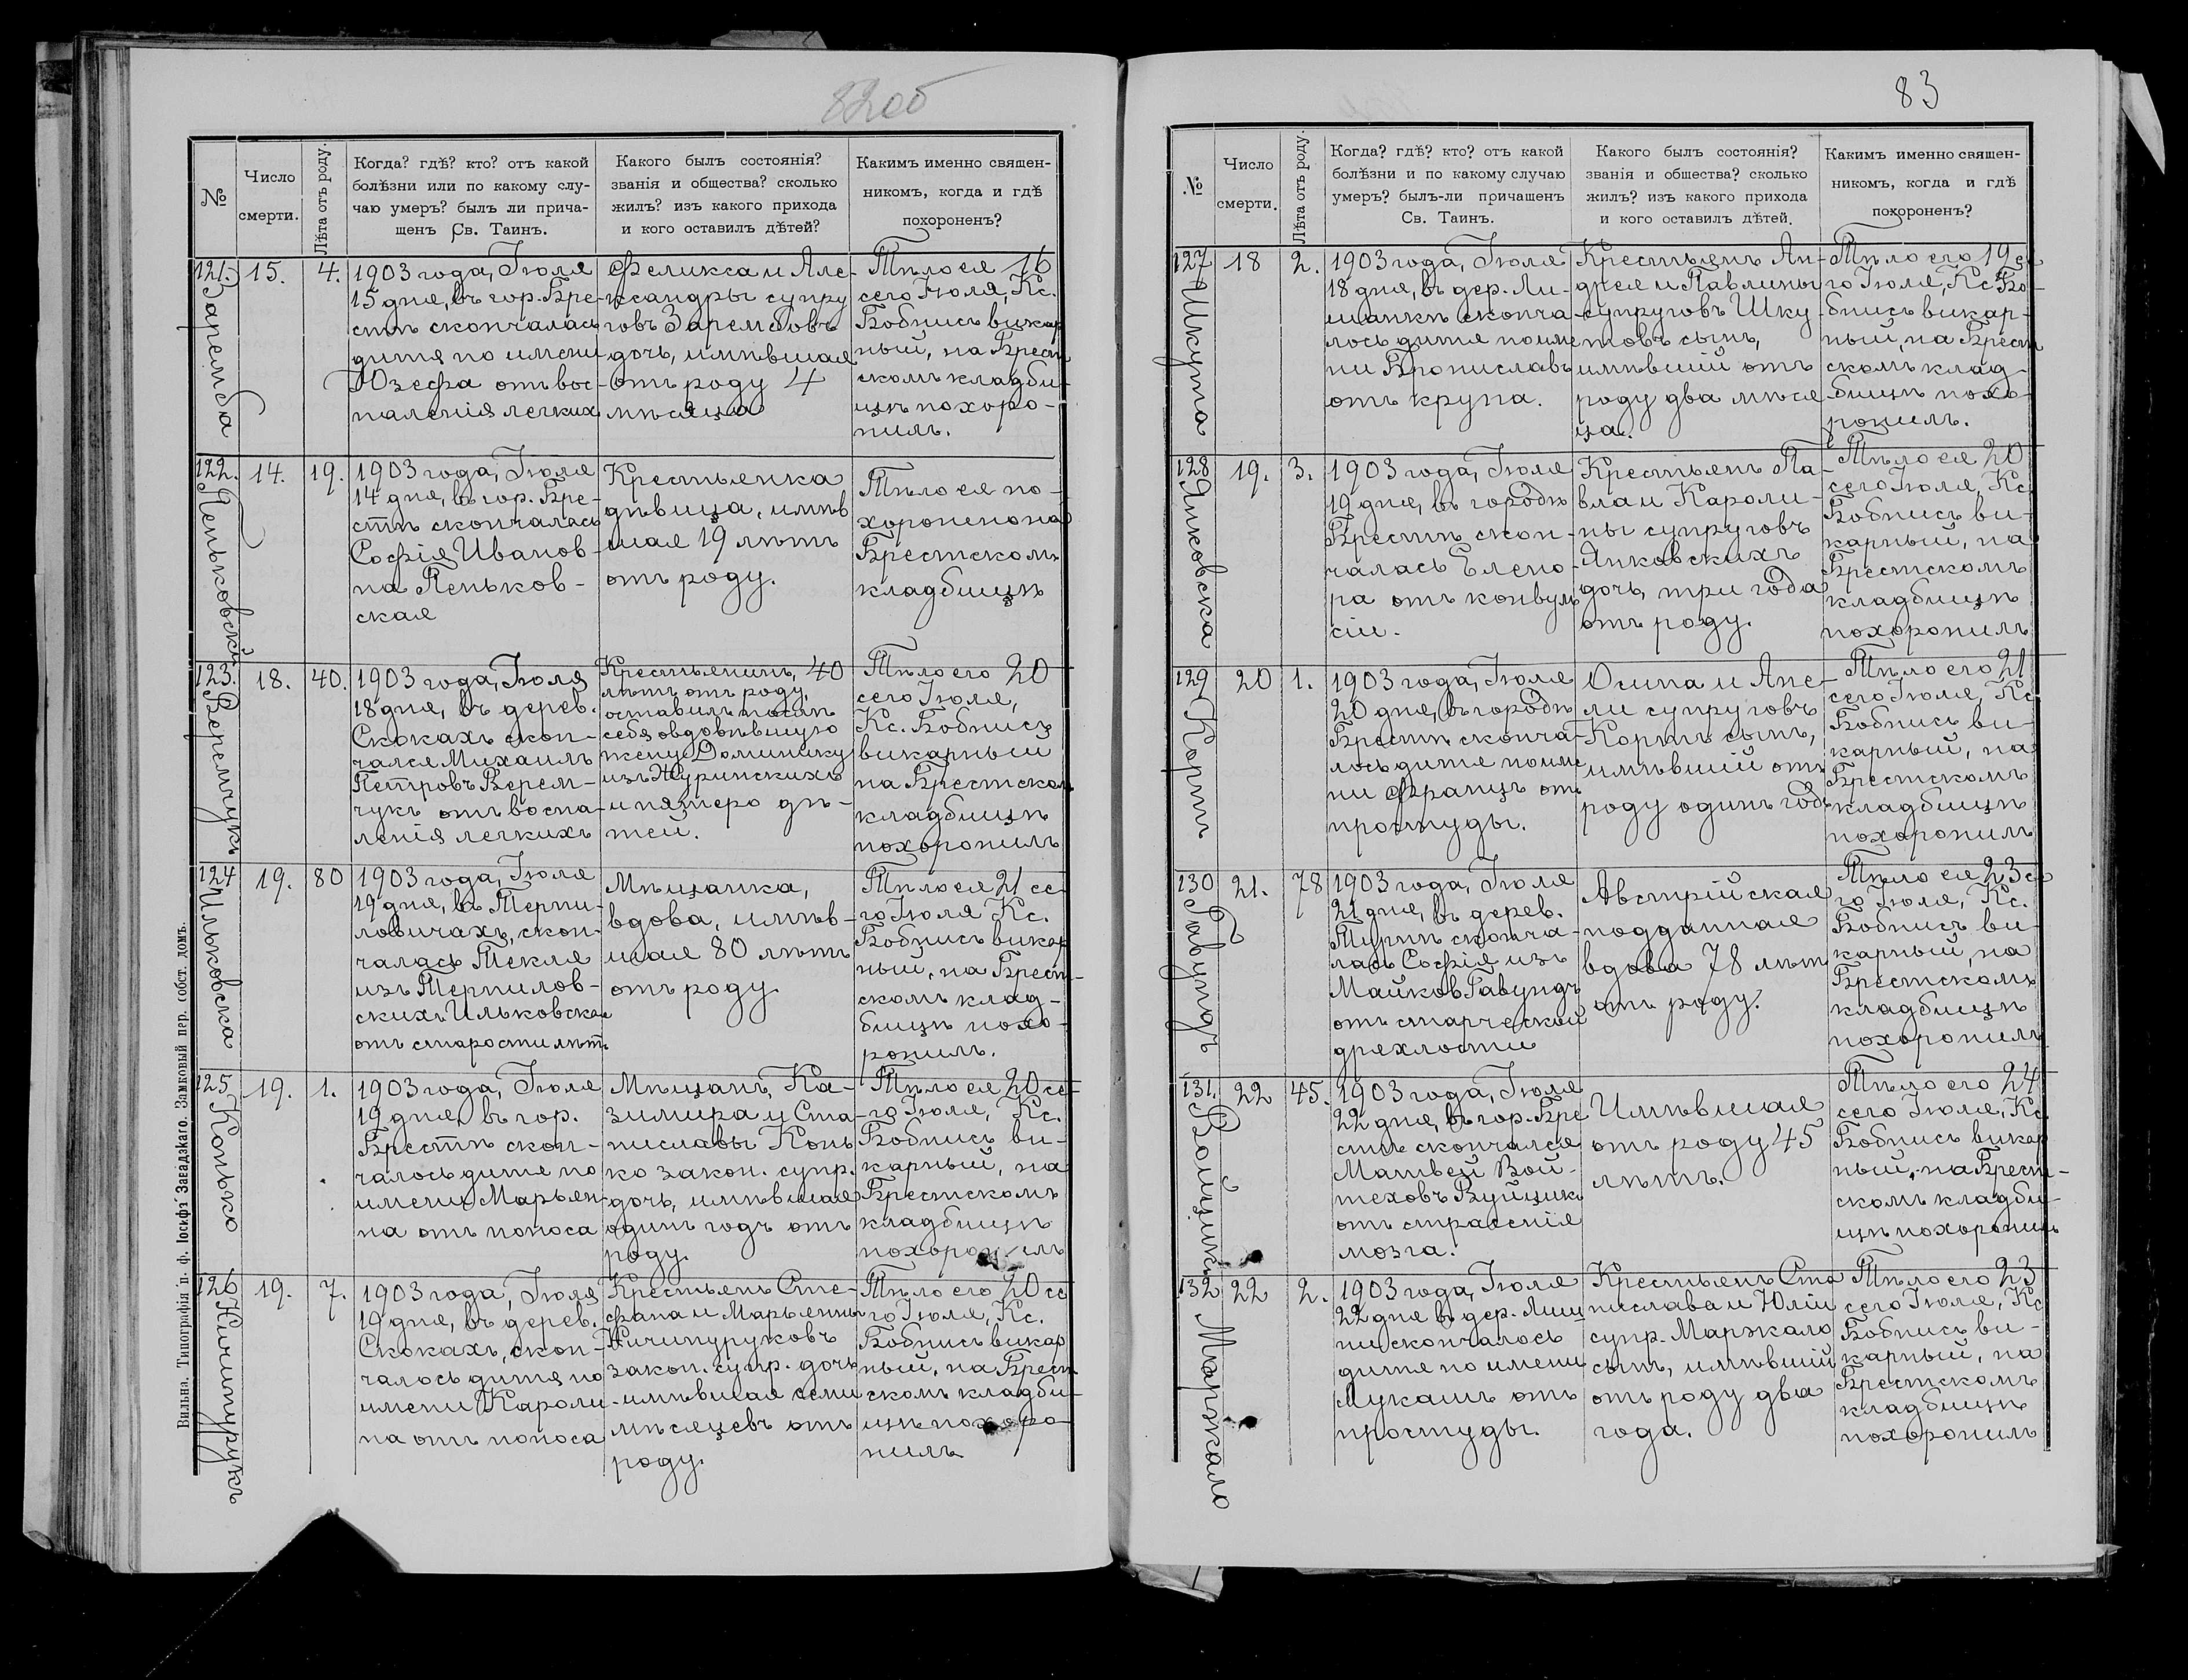 82об
№
Число
смерти.
Лѣта отъ роду.
Когда? гдѣ? кто? отъ какой
болѣзни или по какому слу-
чаю умеръ? былъ ли прича-
щенъ Св. Таинъ.
Какого былъ состоянія?
званія и общества? сколько
жилъ? изъ какого прихода
и кого оставилъ дѣтей?
Какимъ именно священ-
никомъ, когда и гдѣ
похороненъ?
121.
Заремба
15.
4.
1903 года, Іюля
15 дня, въ гор. Бре-
стѣ скончалась
дитя по имени
Юзефа отъ вос-
паленія легкихъ
Феликса и Але-
ксандры супру
говъ Зарембовъ
дочь, имѣвшая
отъ роду 4
мѣсяца
Тѣло ея 16
сего Іюля, Кс.
Бобнисъ викар
ный, на Брест
скомъ кладби-
щѣ похоро-
нилъ.
122.
Пеньковскій
14.
19.
1903 года, Іюля
14 дня, въ гор. Бре-
стѣ скончалась
Софія Иванов-
на Пеньков-
ская
Крестьянка
дѣвица, имѣв
шая 19 лѣтъ
отъ роду.
Тѣло ея по-
хоронено на
Брестскомъ
кладбищѣ
123.
Веремчукъ
18.
40.
1903 года, Іюля
18 дня, въ дерев.
Скокахъ скон-
чался Михаилъ
Петровъ Верем-
чукъ отъ воспа-
ленія легкихъ
Крестьянинъ, 40
лѣтъ отъ роду,
оставилъ послѣ
себя овдовѣвшую
жену Доминику
изъ Журинскихъ
и пятеро дѣ-
тей.
Тѣло его 20
сего Іюля,
Кс. Бобнисъ
викарный
на Брестском
кладбищѣ
похоронилъ
124
Ильковска
19.
80
1903 года, Іюля
19 дня, въ Терпи-
ловичахъ, скон-
чалась Текля
изъ Терпилов-
скихъ Ильковская
отъ старости лѣтъ
Мѣщанка,
вдова, имѣв-
шая 80 лѣтъ
отъ роду
Тѣло ея 21 се-
го Іюля Кс.
Бобнисъ викар
ный, на Брест-
скомъ клад-
бищѣ похо-
ронилъ.
125
Конько
19.
1.
1903 года, Іюля
19 дня, въ гор.
Брестѣ скон-
чалось дитя по
имени Марьян-
на отъ поноса
Мѣщанъ, Ка-
зимира и Ста-
ниславы Конь
ко закон. супр.
дочь, имѣвшая
одинъ годъ отъ
роду.
Тѣло ея 20 се-
го Іюля, Кс.
Бобнисъ ви-
карный, на
Брестскомъ
кладбищѣ
похоронилъ
126
Ничипурукъ
19.
7.
1903 года, Іюля
19 дня, въ дерев.
Скокахъ, скон-
чалось дитя по
имени Кароли-
на отъ поноса
Крестьянъ Сте-
фана и Марьянны
Ничипуруковъ
закон. супр. дочь
имѣвшая семи
мѣсяцевъ отъ
роду.
Тѣло его 20 се
го Іюля, Кс.
Бобнисъ викар
ный, на Брест
скомъ кладби-
щѣ похоро-
нилъ
Вильна. Типографія п. ф. Іосифъ Завадзкаго. Замковый пер. собст. домъ.
83
№
Число
смерти.
Лѣта отъ роду.
Когда? гдѣ? кто? отъ какой
болѣзни и по какому случаю
умеръ? былъ-ли причащенъ
Св. Таинъ.
Какого былъ состоянія?
званія и общества? сколько
жилъ? изъ какого прихода
и кого оставилъ дѣтей.
Какимъ именно священ-
никомъ, когда и гдѣ
похороненъ?
127
Шкута
18
2.
1903 года, Іюля
18 дня, въ дер. Ли-
шанкѣ сконча-
лось дитя по име
ни Брониславъ
отъ крупа.
Крестьянъ Ан-
дрея и Павлины
супруговъ Шку
товъ сынъ,
имѣвшій отъ
роду два мѣся
ца.
Тѣло его 19 се
го Іюля, Кс Бо-
бнисъ викар-
ный, на Брест
скомъ клад-
бищѣ похо-
ронилъ.
128
Янковска
19.
3.
1903 года, Іюля
19 дня, въ городѣ
Брестѣ скон-
чалась Елено-
ра отъ конвуль
сіи.
Крестьянъ Па-
вла и Кароли-
ны супруговъ
Янковскихъ
дочь, три года
отъ роду.
Тѣло ея 20
сего Іюля, Кс.
Бобнисъ ви-
карный, на
Брестскомъ
кладбищѣ
похоронилъ
129
Кортъ
20
1.
1903 года, Іюля
20 дня, въ городѣ
Брестѣ сконча-
лось дитя по име
ни Францъ отъ
простуды.
Осипа и Анѣ-
ли супруговъ
Кортъ сынъ,
имѣвшій отъ
роду одинъ годъ
Тѣло его 21
сего Іюля, Кс
Бобнисъ ви-
карный, на
Брестскомъ
кладбищѣ
похоронилъ
130
Гавундъ
21.
78
1903 года, Іюля
21 дня, въ дерев.
Тюринѣ сконча-
лась Софія изъ
Майковъ Гавундъ
отъ старческой
дряхлости
Австрійская
подданная
вдова 78 лѣтъ
отъ роду.
Тѣло ея 23 се
го Іюля, Кс.
Бобнисъ ви-
карный, на
Брестскомъ
кладбищѣ
похоронилъ
131.
Войцикъ
22
45.
1903 года, Іюля
22 дня, въ гор. Бре
стѣ скончался
Матвей Вой-
теховъ Вуйцикъ
отъ страсенія
мозга.
Имѣвшая
отъ роду 45
лѣтъ.
Тѣло его 24
сего Іюля, Кс
Бобнисъ викар
ный, на Брест-
скомъ кладби-
щѣ похоронилъ
132
Маржкало
22
2.
1903 года, Іюля
22 дня въ дер. Лищ
ни скончалось
дитя по имени
Лукашъ отъ
простуды.
Крестьянъ Ста
нислава и Юліи
супр. Маржкало
сынъ, имѣвшій
отъ роду два
года.
Тѣло его 23
сего Іюля, Кс
Бобнисъ ви-
карный, на
Брестскомъ
кладбищѣ
похоронилъ